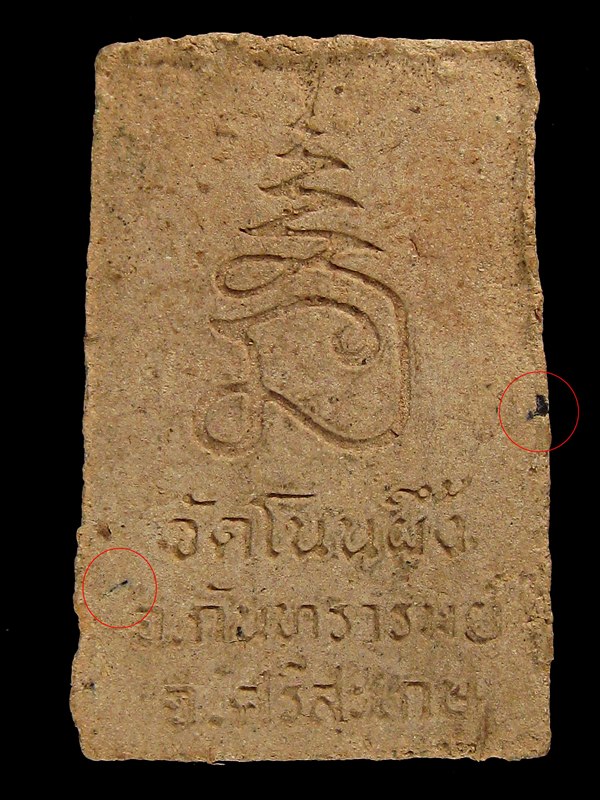 วัดโนนผึ้ง
อ.กันทรารมย์
จ.ศรีสะเกษ